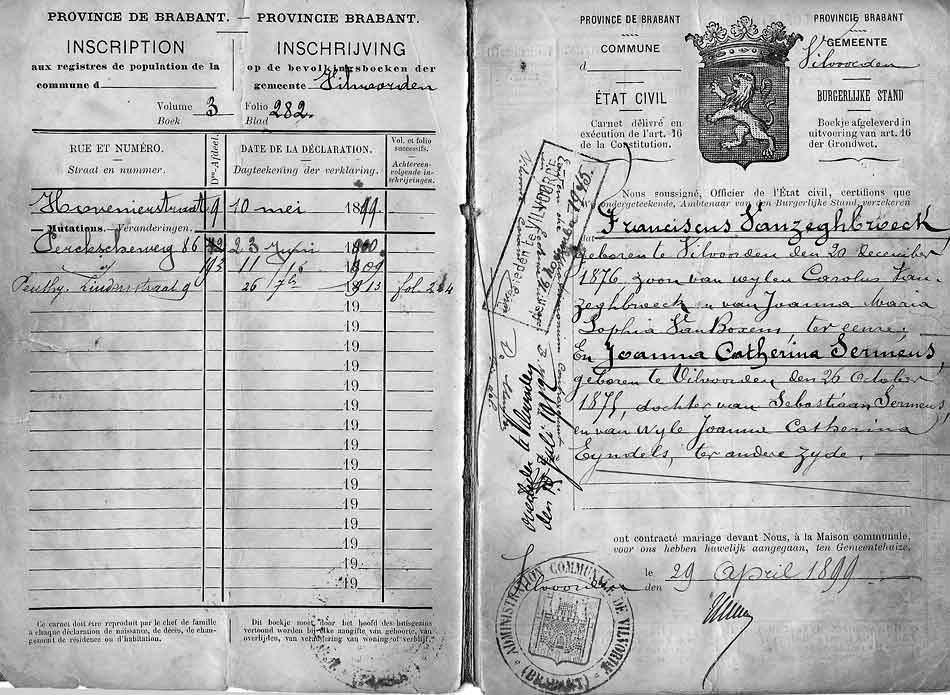 PROVINCE DE BRABANT. — PROVINCIE BRABANT.
INSCRIPTION
aux registres de population de la
commune d
INSCHRIJVING
op de bevolkingsboeken der
gemeente Vilvoorden
Volume
Boek
3
Folio
Blad
282.
RUE ET NUMÉRO.
Straat en nummer.
DATE DE LA DÉCLARATION.
Dagteekening der verklaring.
Vol. et folio
successifs.
Achtereen-
volgende in-
schrijvingen.
Hovenierstraat 9 10 mei 1899.
Mutations. — Veranderingen.
Perckscheweg 86 23 Juni 1900.
11 1909
Linden straat 9 26 1913 fol. 264
19
19
19
19
19
19
19
19
19
19
19
19
19
19
19
Ce carnet doit être reproduit par le chef de famille
à chaque déclaration de naissance, de décès, de chan-
gement de résidence ou d'habitation.
Dit boekje moet door het hoofd des huisgezins
vertoond worden bij elke aangifte van geboorte, van
overlijden, van verandering van woning of verblijf.
PROVINCE DE BRABANT
COMMUNE
d
ÉTAT CIVIL
Carnet délivré en
exécution de l'art. 16
de la Constitution.
PROVINCIE BRABANT
GEMEENTE
Vilvoorden
BURGERLIJKE STAND
Boekje afgeleverd in
uitvoering van art. 16
der Grondwet.
Nous soussigné, Officier de l'État civil, certifions que
Wij ondergeteekende, Ambtenaar van den Burgerlijke Stand, verzekeren
dat Franciscus Vanzeghbroeck
geboren te Vilvoorden den 20 december
1876, zoon van wylen Carolus Van-
zeghbroeck en van Joanna Maria
Sophia Van Boxem, ter eenre.
En Joanna Catherina Sermeus,
geboren te Vilvoorden den 26 October
1875, dochter van Sebastiaan Sermeus,
en van wyle Joanna Catherina
Eyndels, ter andere zyde.
ont contracté mariage devant Nous, à la Maison communale,
voor ons hebben huwelijk aangegaan, ten Gemeentehuize,
le
den
29 April 1899
Vilvoorden
ADMINISTRATION COMMUNALE DE VILVORDE
(BRABANT)